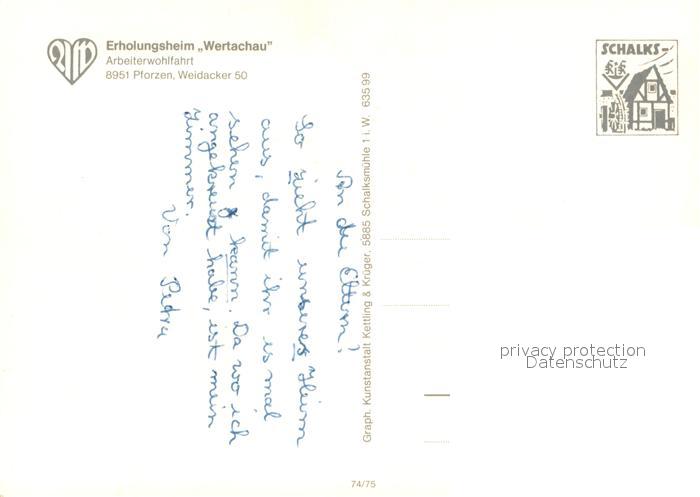 Erholungsheim „Wertachau"
Arbeiterwohlfahrt
8951 Pforzen, Weidacker 50
SCHALKS-
An die Eltern!
So sieht unseres "Heim
aus, damit ihr es mal
sehen kann. Da wo ich
angekreuzt habe, ist mein
Zimmer.
Von Petra
Graph. Kunstanstalt Kettling & Krüger, 5885 Schalksmühle 1 i. W. 635 99
privacy protection
Datenschutz
74/75